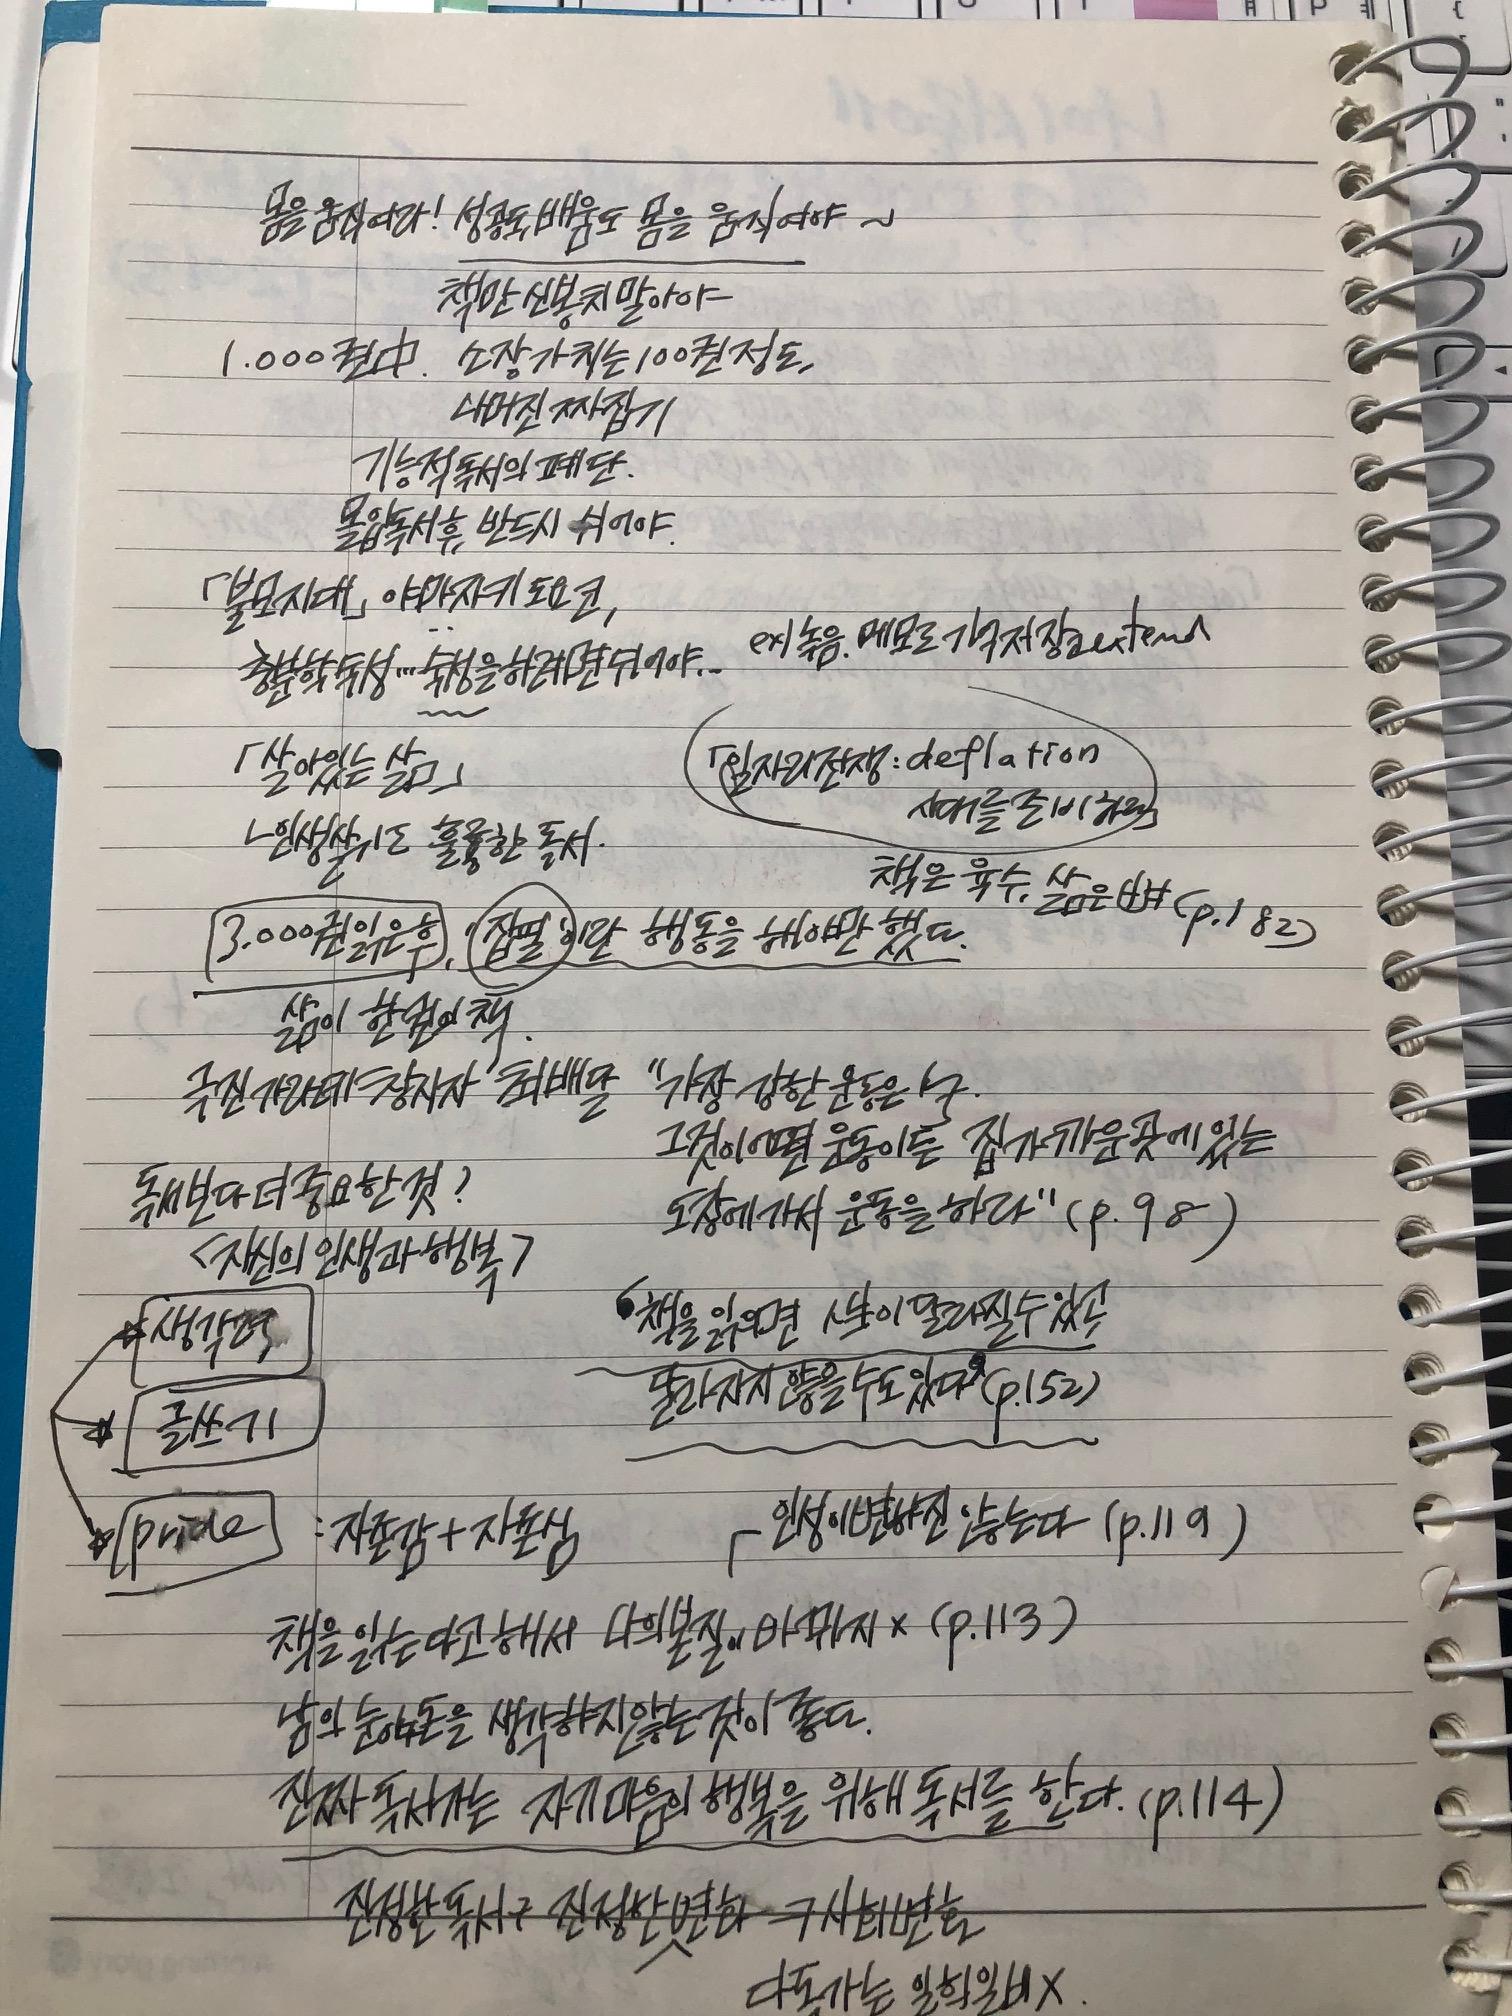 몸을 움직여라! 성공도, 배움도 몸을 움직여야 ~
책만 신봉치 말아야
1.000권中. 소장가치는 100권정도,
나머진 짜집기
기능적 독서의 폐단.
몰입독서후, 반드시 쉬어야.
「불모지대」 야마자키 도요코,
ex) 녹음. 메모로 기억저장고 extend
충분한 숙성… 숙성을 하려면 쉬어야..
「살아있는 삶」
「일자리전쟁: deflation
시대를 준비하라」
ㄴ인생살이도 훌륭한 독서.
책은 육수, 삶은 (p.182)
3.000권 읽은 후, 집필이란 행동을 해야만 했다.
삶이 한권의 책.
극진가라데 창시자 최배달 "가장 강한 운동은 no.
그것이 어떤 운동이든 집 가까운 곳에 있는
도장에 가서 운동을 하라" (p.98)
독서보다 더 중요한 것?
<자신의 인생과 행복>
책을 읽으면 삶이 달라질수있고
달라지지 않을 수도 있다" (p.152)
생각력
글쓰기
pride : 자존감 + 자존심
인성이 변하진 않는다 (p.119)
책을 읽는다고 해서 나의 본질이 바뀌지 x (p.113)
남의 눈 생각하지 않는 것이 좋다.
진짜 독서가는 자기 마음의 행복을 위해 독서를 한다. (p.114)
진정한 독서 진정한 변화 사회변화
다독가는 일희일비 X.